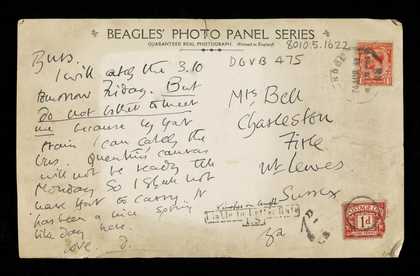 BEAGLES' PHOTO PANEL SERIES
GUARANTEED REAL PHOTOGRAPH. (Printed in England)
8010.5.1622
DGVB 475
Buss.
I will catch the 3.10
tomorrow Friday. But
do not bother to meet
me because by that
train I can catch the
bus. Quentin's canvas
will not be ready till
Monday so I shall not
have that to carry. It
has been a nice spring
like day here.
love. D.
Mrs Bell
Charleston
Firle
Nr Lewes
Sussex
Liable to Letter Rate
1D
POSTAGE DUE
1D